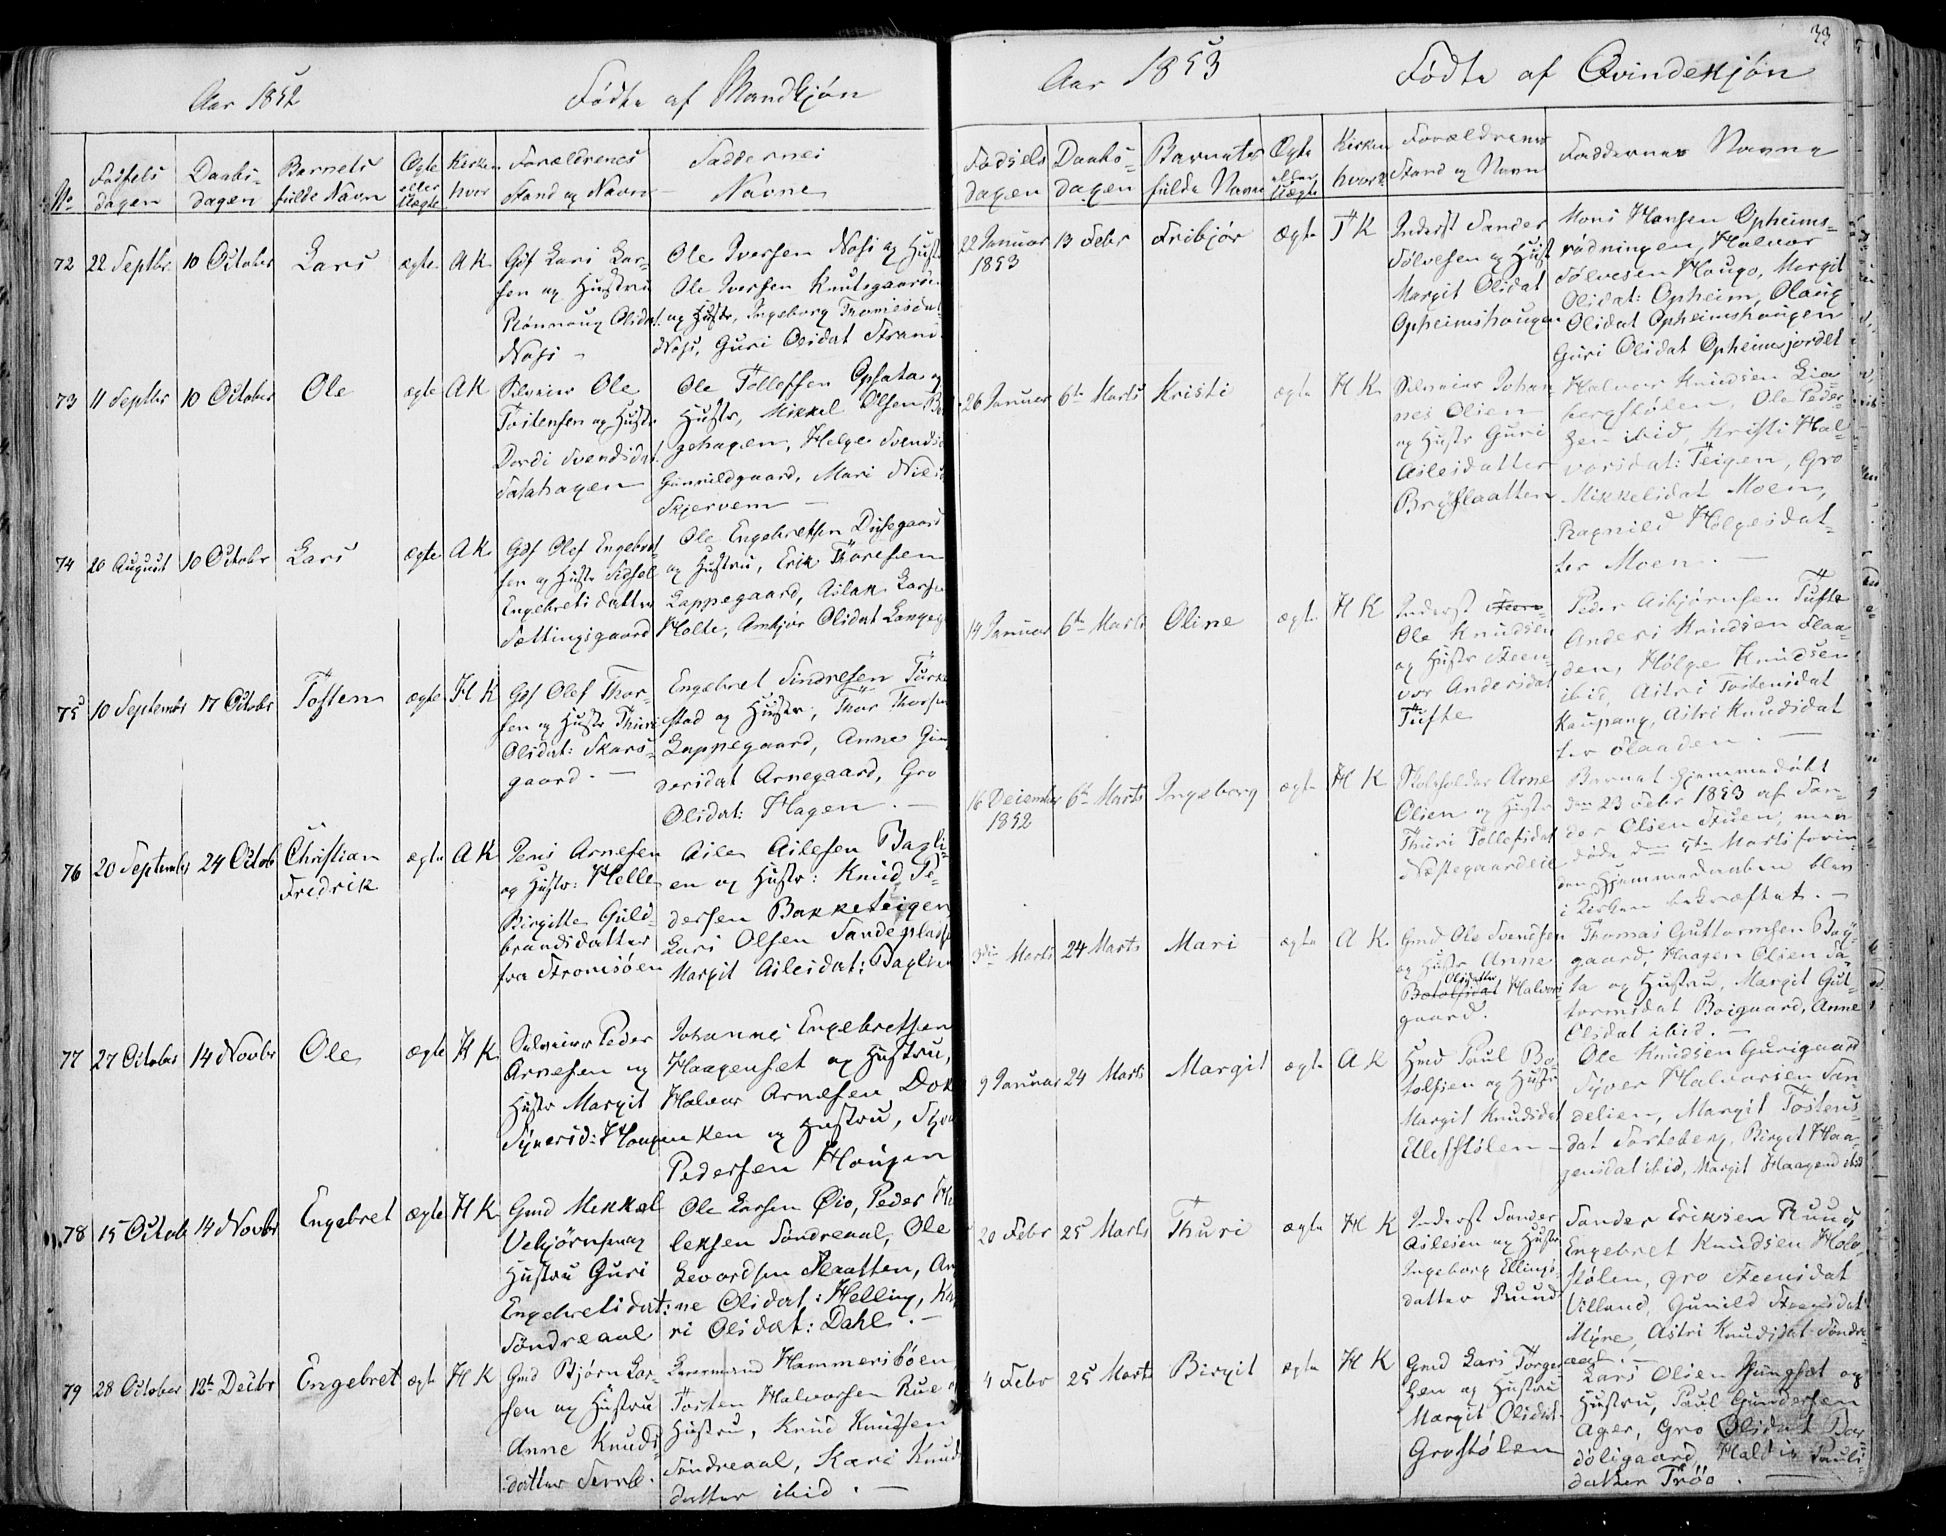 Aar 1852 Fødte af Mandkjøn
No Fødsels dagen Daabs- dagen Barnets fulde Navn Ægte eller Uægte Kirken hvor Forældrenes Stand og Navn Faddernes Navne
72 22 Septbr 10 October Lars ægte A K
Gbf Lars Lar-
sen og Hustru
Rønnaug Olsdat
Næss -
Ole Iversen Næss og Hustr
Ole Iversen Knutsgaarden
og Hustr, Ingeborg Thomesdat
Næss, Guri Olsdat Strand
73 11 Septbr 10 October Ole ægte A K
Selveier Ole
Tostensen og Hustr
Dordi Svendsdat
Satahagen
Ole Tollefsen Opsata og
Hustr, Mikkel Olsen
gehagen, Helge Svends
Gunnildgaard, Mari Niels
Skjervem -
74 20 August 10 Octobr Lars ægte A K
Gbf Olef Engebret-
sen og Hustr Sidsel
Engebretsdatter
Sættingsgaard
Ole Engebretsen Dysegaard
og Hustru, Erik Thoresen
Lappegaard, Aslak Larsen
Holte, Ambjør Olsdat
75 10 Septembr 17 Octobr Tosten ægte H K
Gbf Olef Thor-
sen og Hustr Thuri
Olsdat: Skars-
gaard. -
Engebret Sindresen Tørke
stad og Hustr, Thor Thorsen
Lappegaard, Anne Gun
dersdat Arnegaard, Gro
Olsdat: Hagen. -
76 20 September 24 Octob Christian Fredrik ægte A K
Jens Arnesen
og Hustr: Helle
Birgitte Guld-
brandsdatter
fra Strømsøen
Asle Aslesen Bagli-
en og Hustr: Knud Pe-
dersen Bakketeigen
Lars Olsen Sandeplads
Margit Aslesdat: Baglien
77 27 October 14 Novbr Ole ægte H K
Selveier Peder
Arnesen og
Hustr Margit
Syversd: Haugen
Johannes Engebretsen
Haagenset og Hustru,
Halvor Arnesen Dok
ken og Hustru, Syver
Pedersen Haugen
78 15 Octob 14 Novbr Engebret ægte H K
Gmd Mekkel
Vebjørnsen og
Hustru Guri
Engebretsdat:
Søndreaal
Ole Larsen Øio, Peder He
leksen Søndreaal, Ole
Levordsen Slaatten, An
ne Olsdat: Helling, Ka
ri Olsdat: Dahl. -
79 28 October 12te Decbr Engebret ægte H K
Gmd Bjørn Lar-
sen og Hustru
Anne Knuds-
datter
Hammersbøen,
Tosten Halvorsen Rue og
Hustru, Knud Knudsen
Søndreaal, Kari Knuds
datter ibid. -
33
Aar 1853 Fødte af Qvindekjøn
Fødsels dagen Daabs- dagen Barnets fulde Navn Ægte eller Uægte Kirken hvor? Forældrenes Stand og Navn Faddernes Navne
22 Januar 1853 13 Febr Fribjør ægte T K
Inderst Sander
Sølvesen og Hust
Margit Olsdat
Opheimshaugen
Mons Hansen Opheims-
rødningen, Halvor
Sølvesen Haugo, Margit
Olsdat: Opheim, Olaug
Olsdat Opheimshaugen
Guri Olsdat Opheimsjordet
26 Januar 6te Marts Kristi ægte H K
Selveier Johan-
nes Olsen
og Hustr Guri
Aslesdatter
Brøslaatten
Halvor Knudsen Lia-
bergstølen, Ole Peder-
sen ibid, Kristi Hal-
vorsdat: Teigen, Gro
Mikkelsdat Moen,
Ragnild Helgesdat-
ter Moen. -
14 Januar 6te Marts Oline ægte H K
Inderst
Ole Knudsen
og Hustr Steen-
vor Andersdat
Tufte
Peder Asbjørnsen Tufte
Anders Knudsen Slaa-
den, Helge Knudsen
ibid, Astri Tostensdat
Kaupang, Astri Knudsdat
ter Slaaden. -
16 December 1852 6te Marts Ingeborg ægte H K
Skoleholder Arne
Olsen og Hustr
Thuri Tollefsdat
Næstegaardeie
Barnet hjemmedøbt
den 23 Febr 1853 af San-
der Olsen Stuen, men
døde den 5te Marts forin-
den Hjemmedaaben blev
i Kirken bekræftet. -
3die Marts 24 Marts Mari ægte A K
Gmd Ole Svendsen
og Hustr Anne
Botolfsdat Olsdatter Halvors-
gaard.
Thomas Guttormsen Bøy-
gaard, Haagen Olsen Sa-
ta og Hustru, Margit Gut-
tormsdat Boigaard, Anne
Olsdat ibid. -
9 Januar 24 Marts Margit ægte A K
Hmd Paul Bo-
tolfsen og Hustr
Margit Knudsdat
Ellefstølen -
Ole Knudsen Gurigaard
Syver Halvorsen San
delien, Margit Tostens-
dat Torteberg, Birgit Haa-
gensdat ibid, Margit Haagensd ibid
20 Febr 25 Marts Thuri ægte H K
Inderst Sander
Aslesen og Hustr
Ingeborg Ellings-
datter Ruud
Sander Eriksen Ruud,
Engebret Knudsen Hola-
stølen, Gro Steensdat
Villand, Gunild Steensdat
Myre, Astri Knudsdat Søndre-
aal. -
4 Febr 25 Marts Birgit ægte H K
Gmd Lars Torge
sen og Hustru
Margit Olsdat-
Grostølen
Lars Olsen Skungset og
Hustru, Paul Gundersen
Ager, Gro Olsdat Bar-
doligaard, Haldis Pauls-
datter Trøo. -